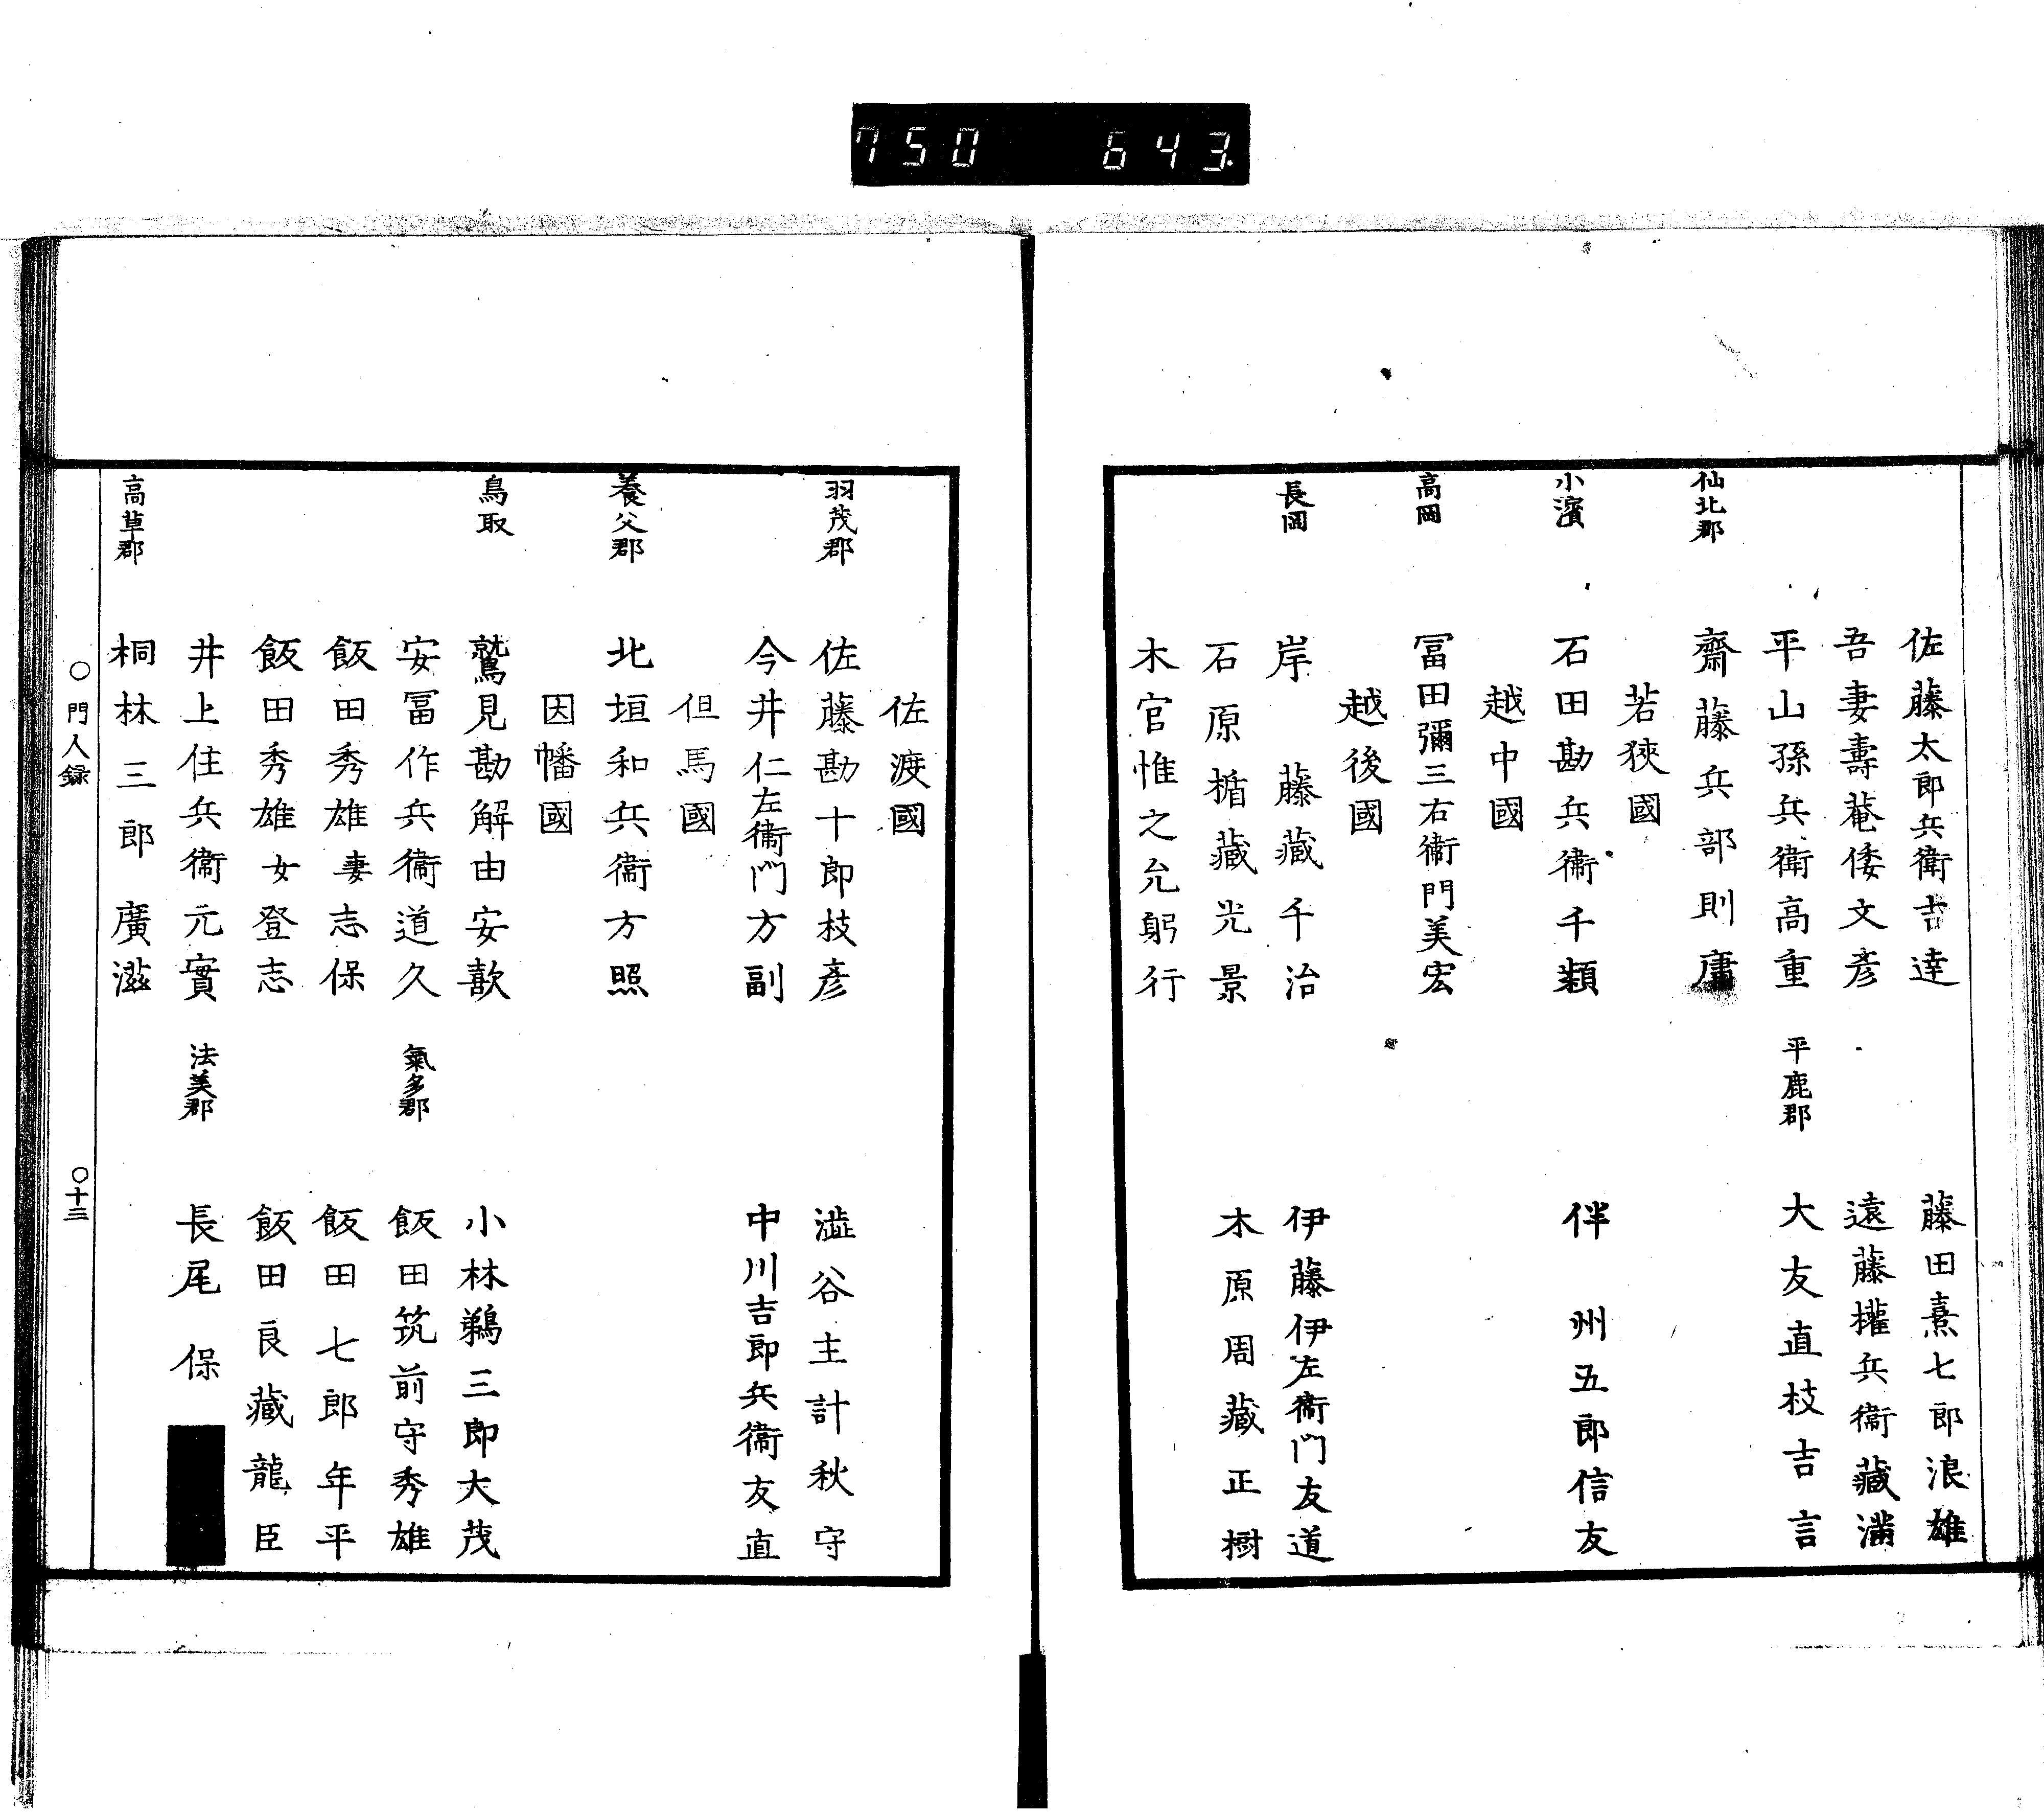 750 643
佐藤太郎兵衛吉達
藤田熹七郎浪雄
吾妻壽菴倭文彦
遠藤權兵衛藏滿
平山孫兵衛高重
平鹿郡
大友直枝吉言
仙北郡
齋藤兵部則庸
若狹國
小濱
石田勘兵衛千穎
伴 州五郎信友
越中國
高岡
冨田彌三右衛門美宏
越後國
長岡
岸 藤藏千治
伊藤伊左衛門友道
石原楯藏光景
木原周藏正樹
木官惟之允躬行
佐渡國
羽茂郡
佐藤勘十郎枝彦
澁谷主計秋守
今井仁左衛門方副
中川吉郎兵衛友直
但馬國
養父郡
北垣和兵衛方照
因幡國
鳥取
鷲見勘解由安歖
小林鵜三郎大茂
安冨作兵衛道久
氣多郡
飯田筑前守秀雄
飯田秀雄妻志保
飯田七郎年平
飯田秀雄女登志
飯田良藏龍臣
井上住兵衛元實
法美郡
長尾 保
高草郡
桐林三郎廣滋
○門人録
○十三